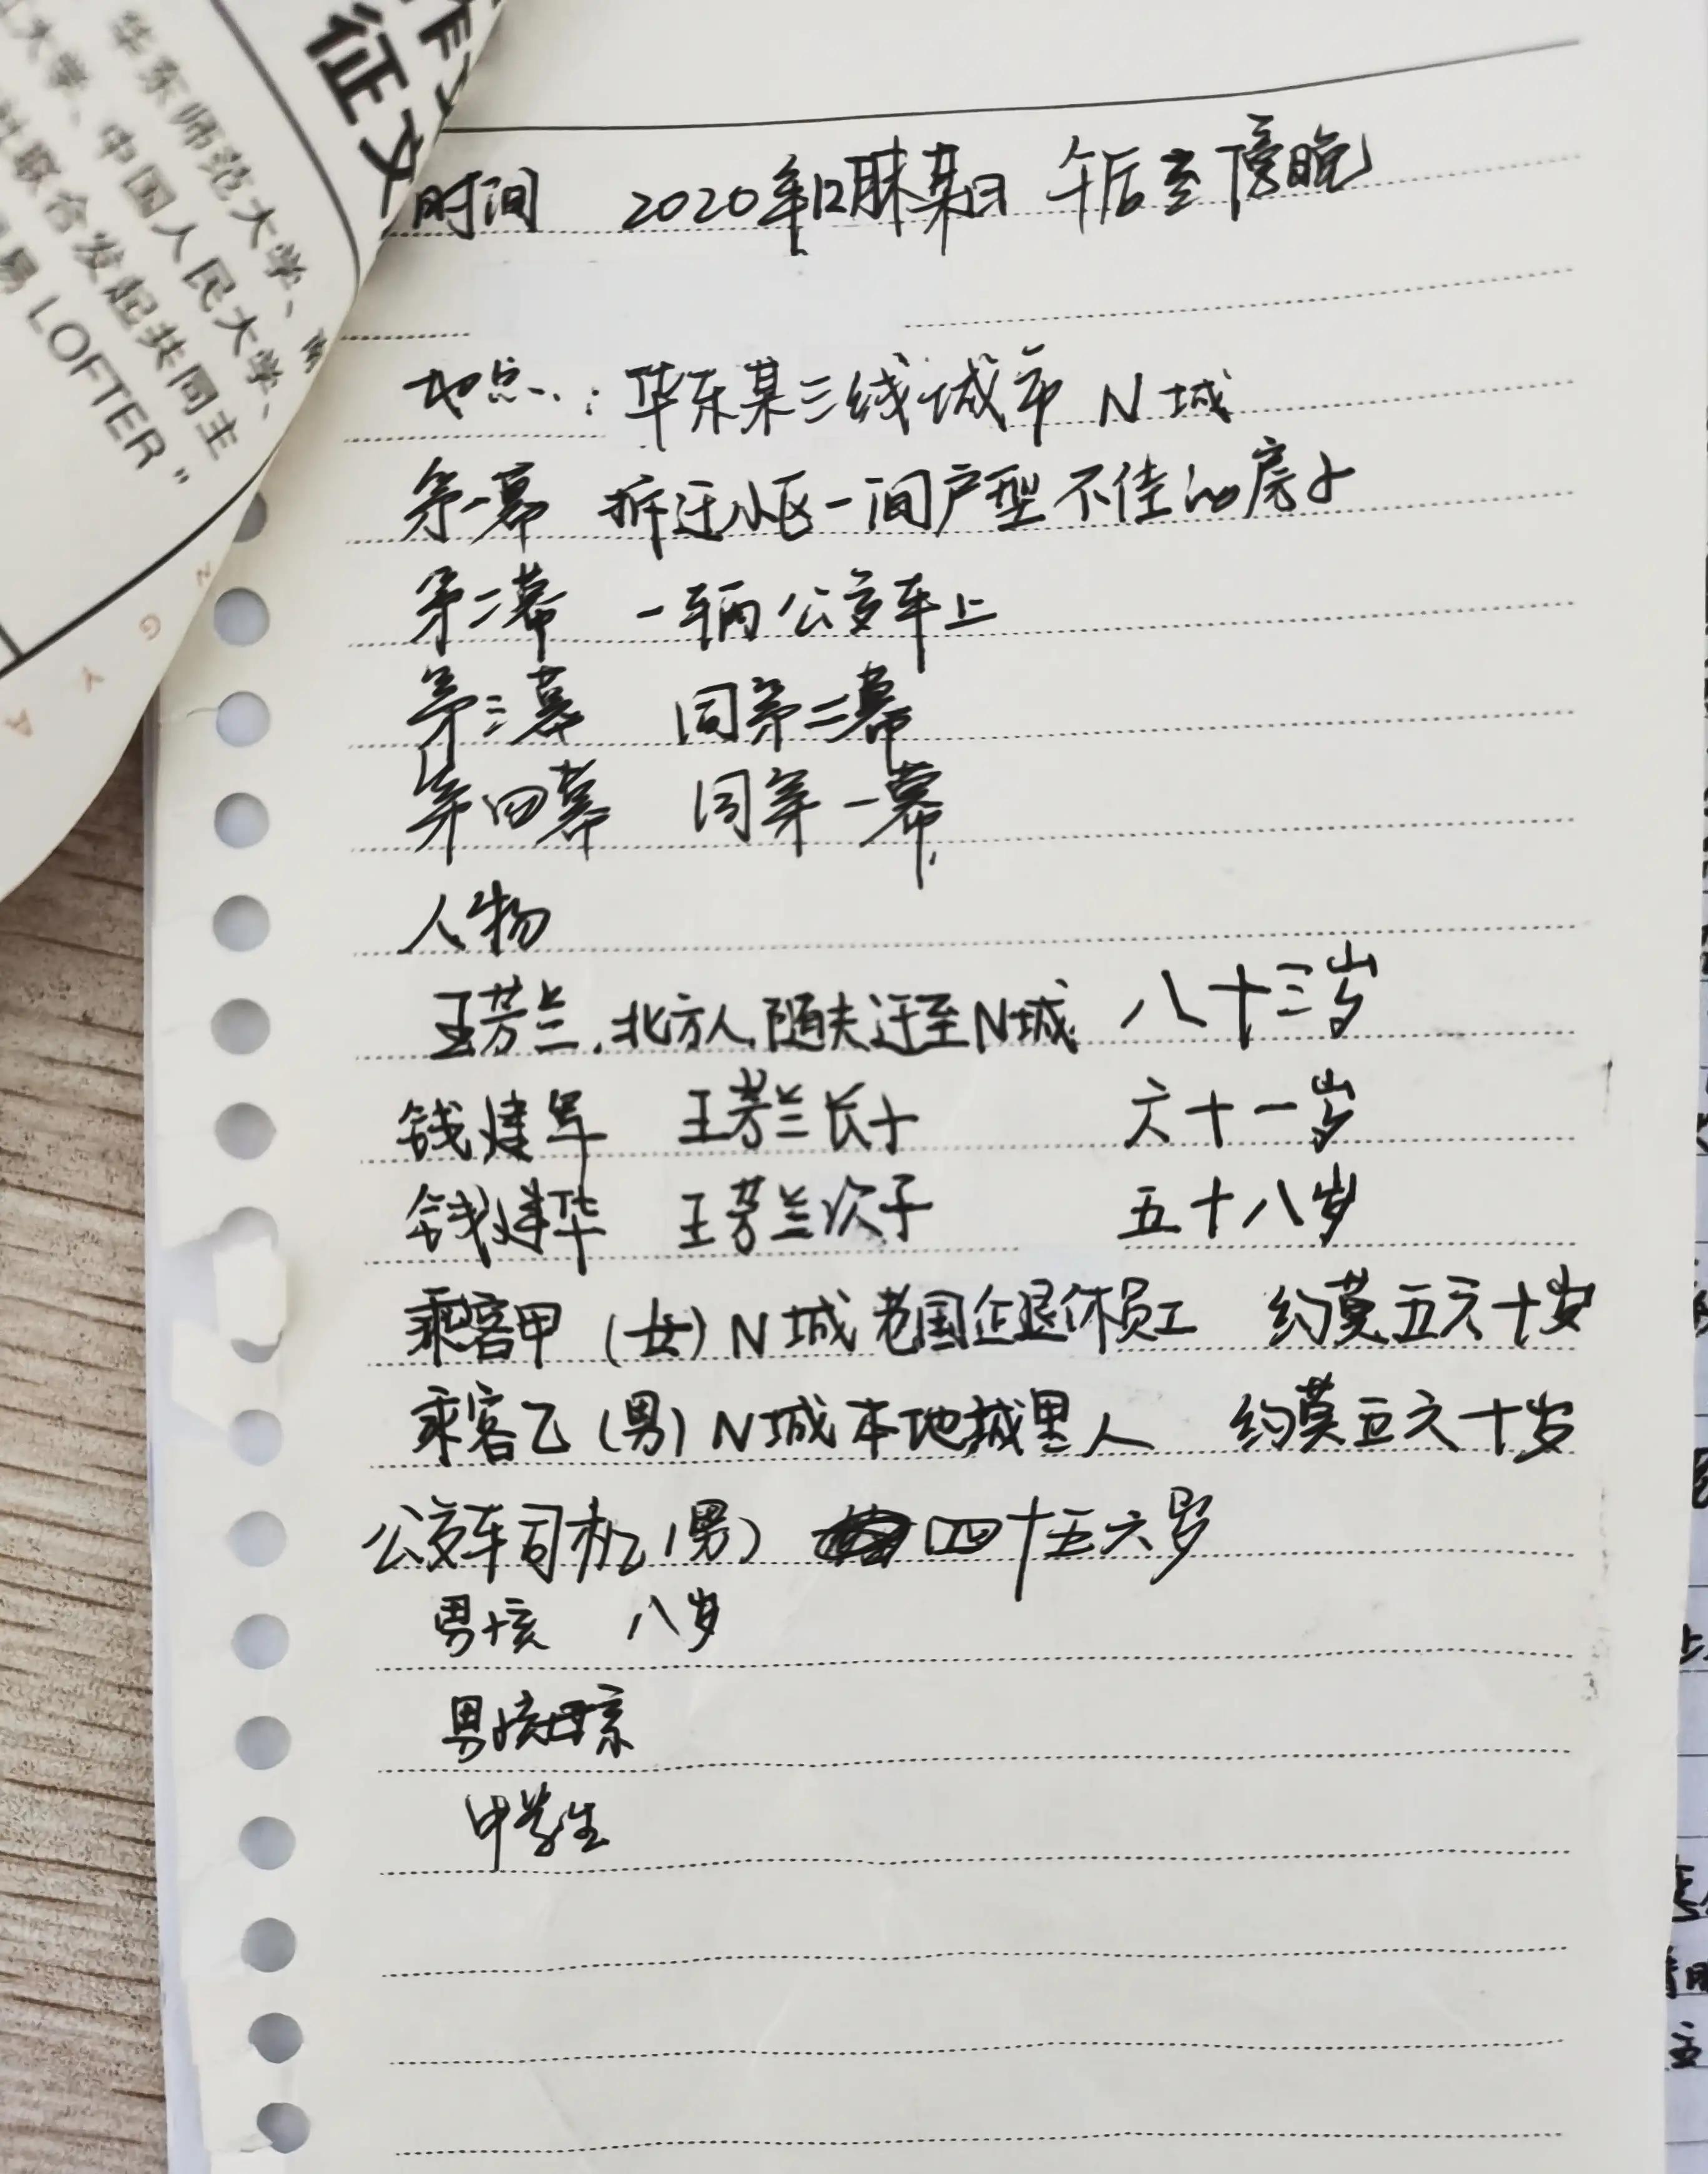 作
征文
华东师范大学、南
工大学、中国人民大学、
社联合发起共同主
易 LOFTER”
N
G
Y
A
时间 2020年12月末某日 午后至傍晚
地点：华东某三线城市 N城
第一幕 拆迁小区一间户型不佳的房子
第二幕 一辆公交车上
第三幕 同第二幕
第四幕 同第一幕
人物
王芳兰，北方人，随夫迁至N城 八十三岁
钱建军 王芳兰长子 六十一岁
钱建华 王芳兰次子 五十八岁
乘客甲（女）N城老国企退休员工 约莫五六十岁
乘客乙（男）N城本地城里人 约莫五六十岁
公交车司机（男） 四十五六岁
男孩 八岁
男孩母亲
中学生